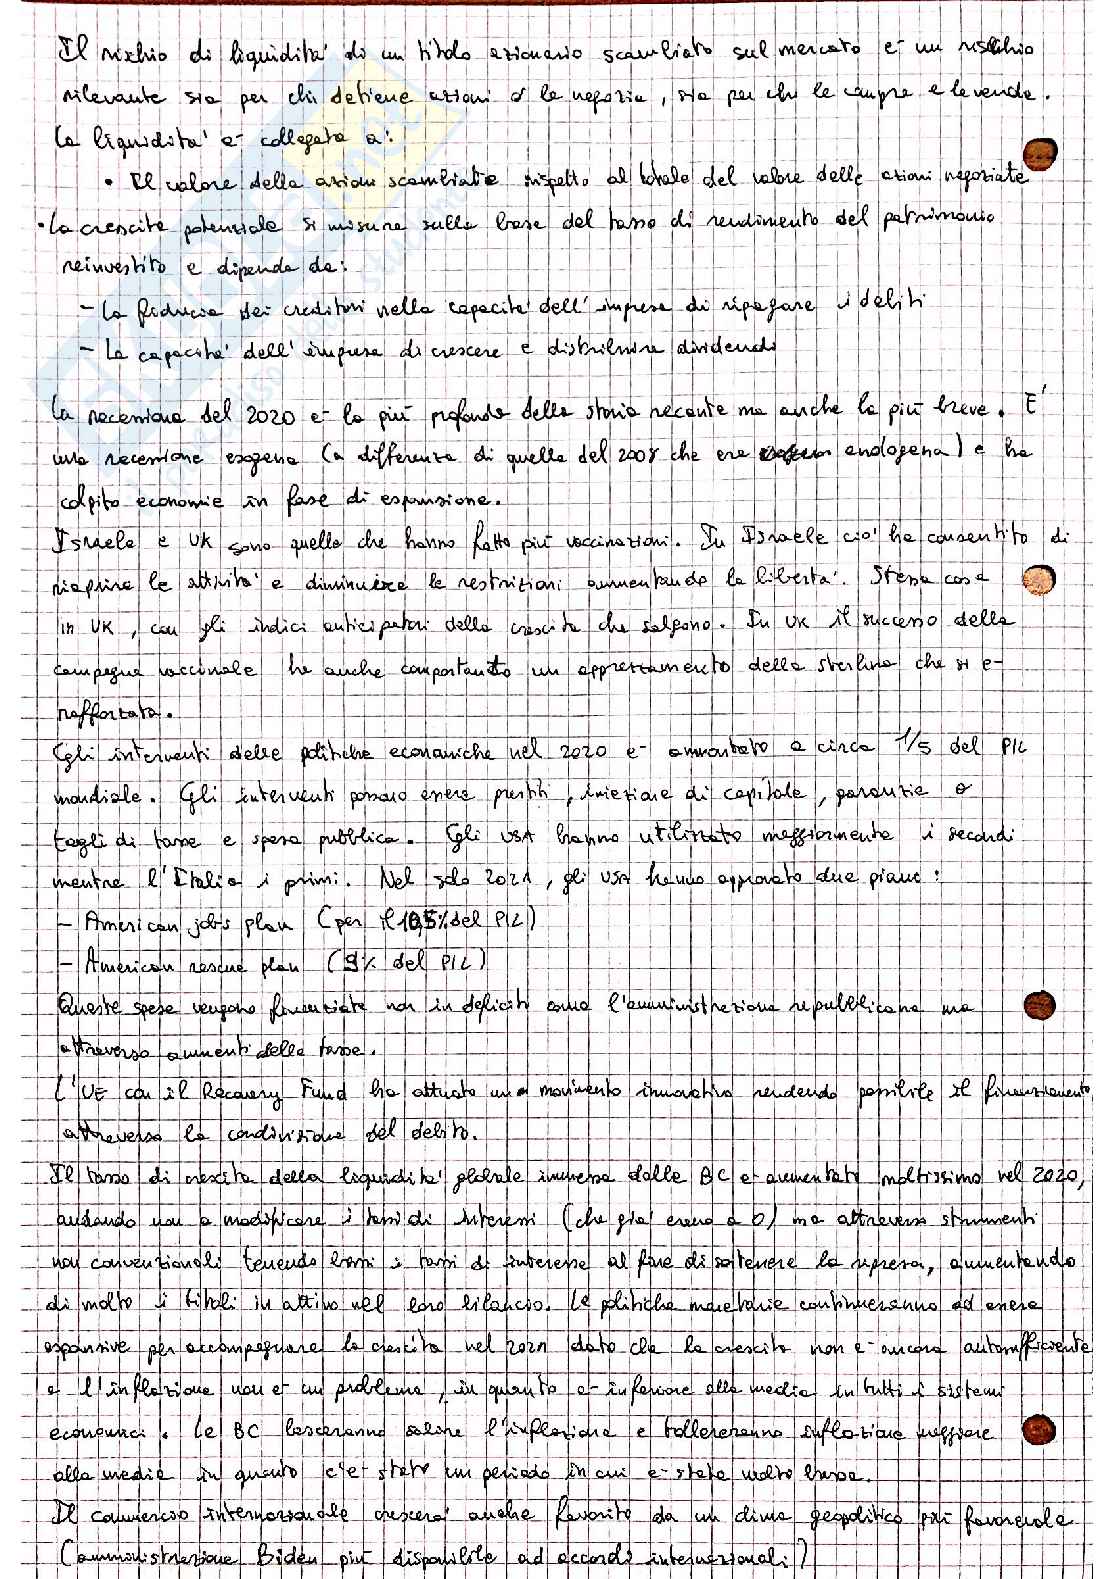 Il rischio di liquidità di un titolo azionario scambiato sul mercato è un rischio
rilevante sia per chi detiene azioni o le negozia, sia per chi le compra e le vende.
La liquidità è collegata a:
• Il valore delle azioni scambiate rispetto al totale del valore delle azioni negoziate
• La crescita potenziale si misura sulla base del tasso di rendimento del patrimonio
reinvestito e dipende da:
- La fiducia dei creditori nella capacità dell'impresa di ripagare i debiti
- La capacità dell'impresa di crescere e distribuire dividendi
La recessione del 2020 è la più profonda della storia recente ma anche la più breve. E'
una recessione esogena (a differenza di quella del 2008 che era endogena) e ha
colpito economie in fase di espansione.
Israele e UK sono quelle che hanno fatto più vaccinazioni. In Israele ciò ha consentito di
riaprire le attività e diminuire le restrizioni aumentando la libertà. Stessa cosa
in UK, con gli indici anticipatori della crescita che salgono. In UK il successo della
campagna vaccinale ha anche comportato un apprezzamento della sterlina che si è
rafforzata.
Gli interventi delle politiche economiche nel 2020 è ammontato a circa 1/5 del PIL
mondiale. Gli interventi possono essere prestiti, iniezione di capitale, garanzie o
tagli di tasse e spesa pubblica. Gli USA hanno utilizzato maggiormente i secondi
mentre l'Italia i primi. Nel solo 2021, gli USA hanno approvato due piani:
- American jobs plan (per il 10,5% del PIL)
- American rescue plan (9% del PIL)
Queste spese vengono finanziate non in deficit come l'amministrazione repubblicana ma
attraverso aumenti delle tasse.
L'UE con il Recovery Fund ha attuato un movimento innovativo rendendo possibile il finanziamento
attraverso la condivisione del debito.
Il tasso di crescita della liquidità globale immessa dalle BC è aumentato moltissimo nel 2020,
andando non a modificare i tassi di interessi (che già erano a 0) ma attraverso strumenti
non convenzionali tenendo bassi i tassi di interesse al fine di sostenere la ripresa, aumentando
di molto i titoli in attivo nel loro bilancio. Le politiche monetarie continueranno ad essere
espansive per accompagnare la crescita nel 2021 dato che la crescita non è ancora autosufficiente
e l'inflazione non è un problema, in quanto è inferiore alla media in tutti i sistemi
economici. Le BC lasceranno salire l'inflazione e tollereranno inflazione maggiore
alla media in quanto c'è stato un periodo in cui è stata molto bassa.
Il commercio internazionale crescerà anche favorito da un clima geopolitico più favorevole
(amministrazione Biden più disponibile ad accordi internazionali)